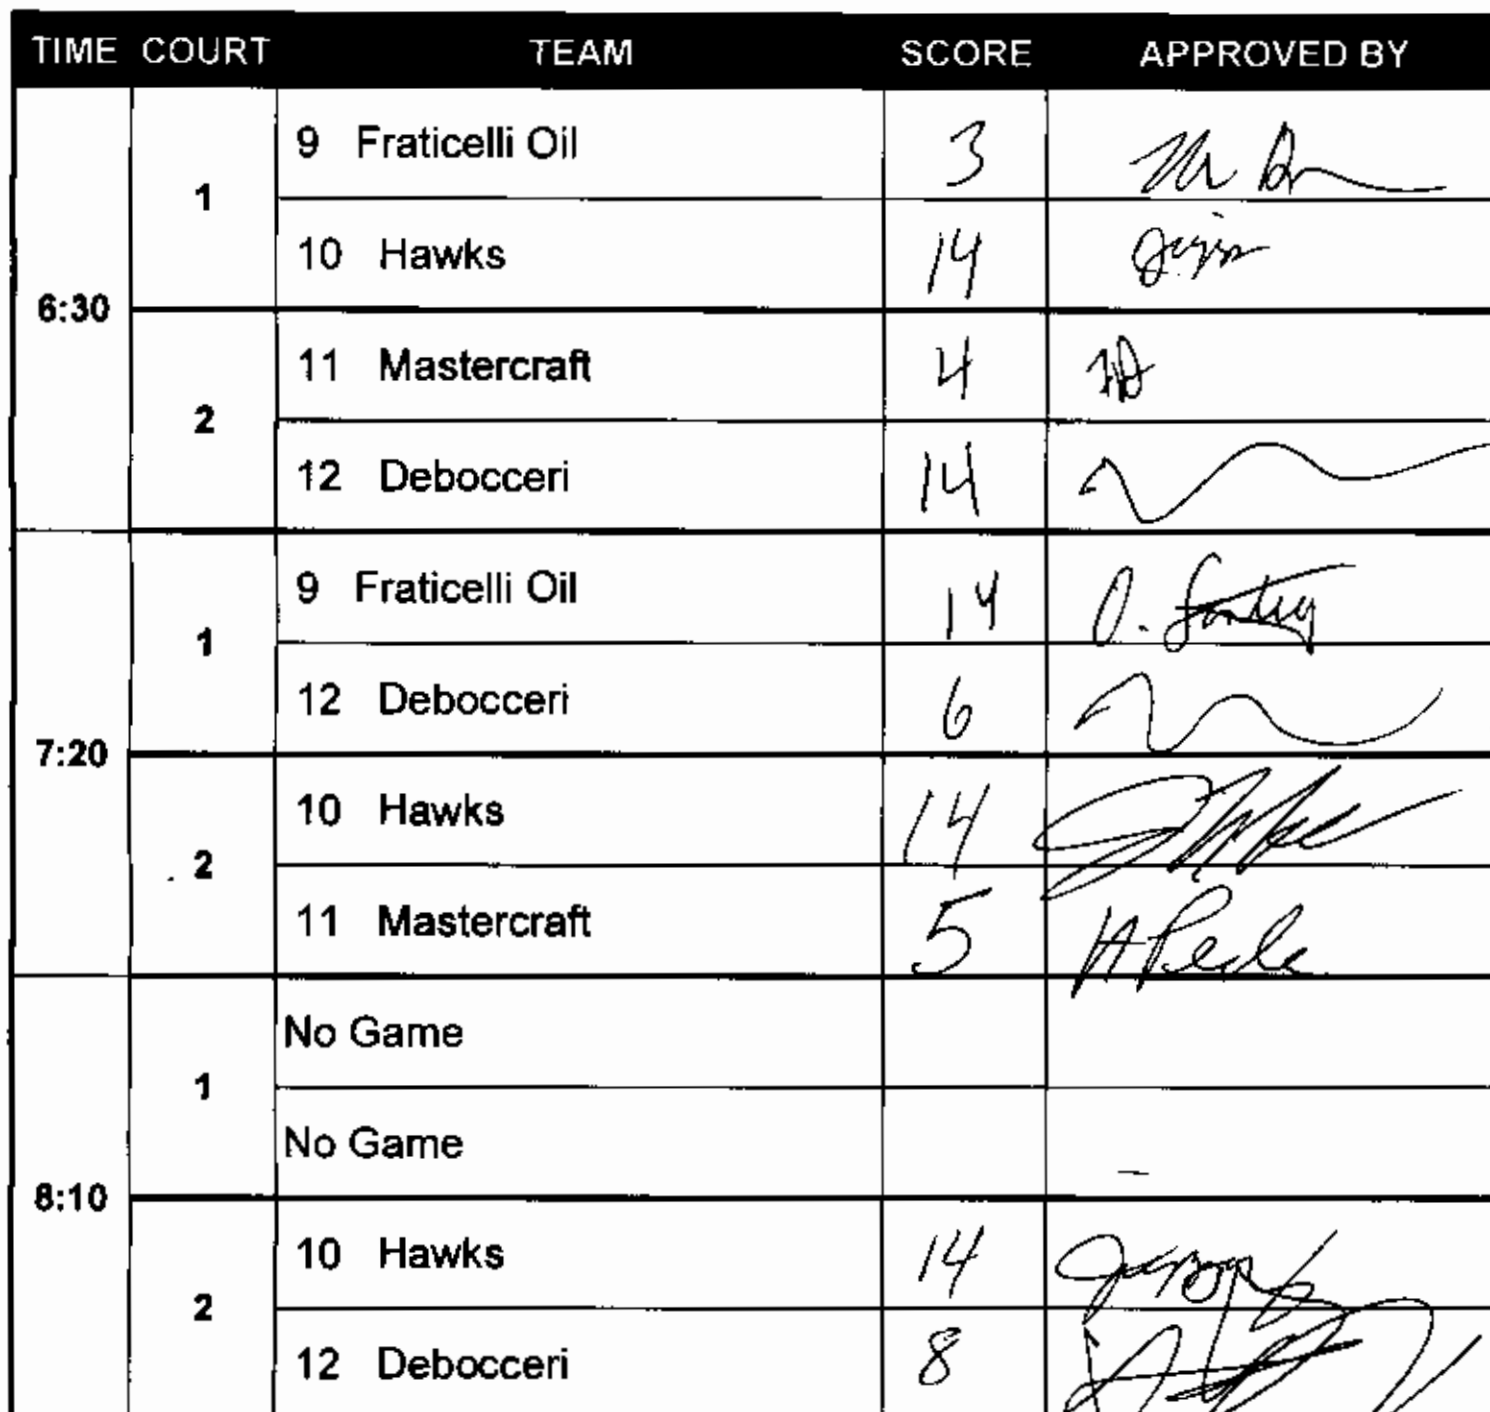 TIME COURT TEAM SCORE APPROVED BY
6:30
1
9 Fraticelli Oil 3
10 Hawks 14
2
11 Mastercraft 4
12 Debocceri 14
7:20
1
9 Fraticelli Oil 14
12 Debocceri 6
2
10 Hawks 14
11 Mastercraft 5
8:10
1
No Game
No Game
2
10 Hawks 14
12 Debocceri 8